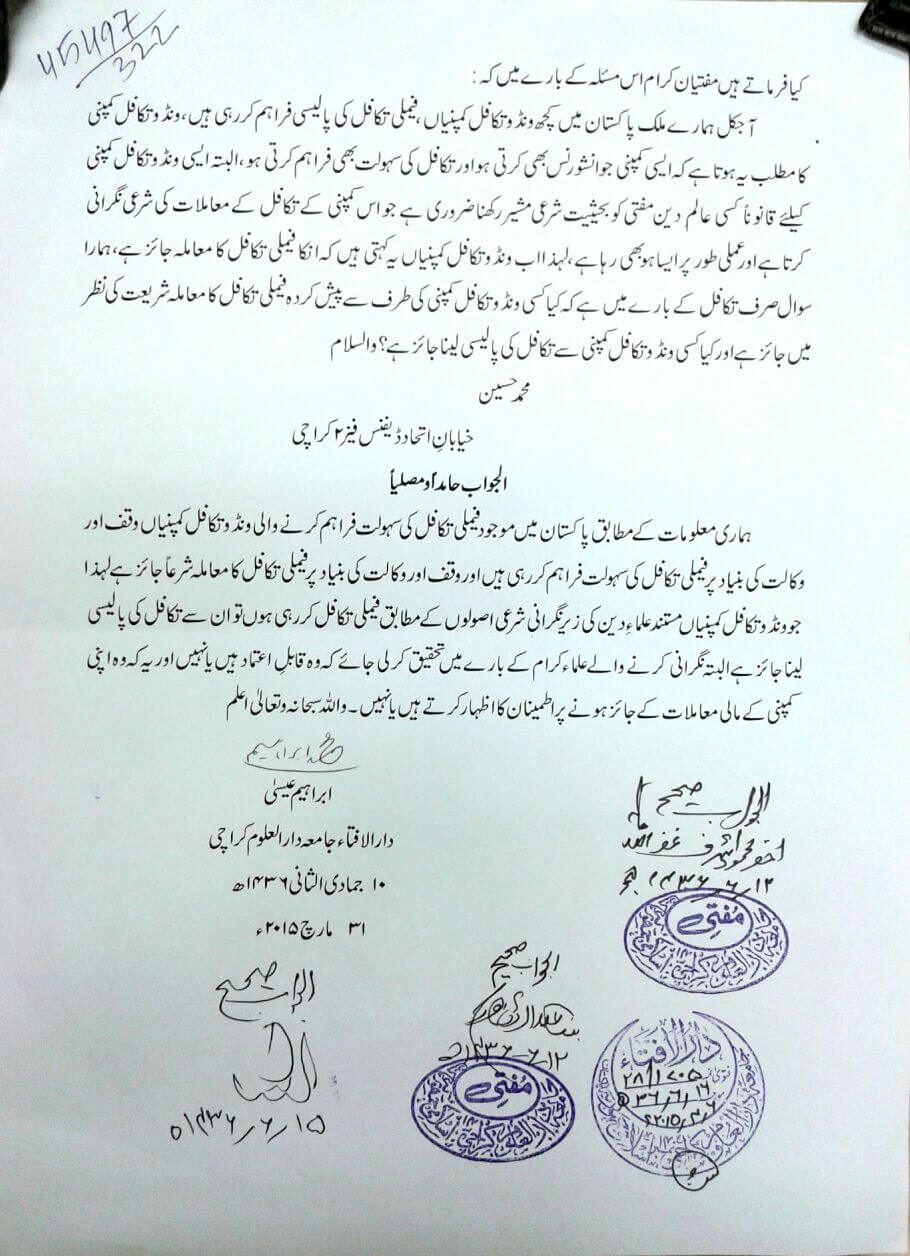 45497/322
کیا فرماتے ہیں مفتیان کرام اس مسئلہ کے بارے میں کہ :
آجکل ہمارے ملک پاکستان میں کچھ ونڈو تکافل کمپنیاں ،فیملی تکافل کی پالیسی فراہم کر رہی ہیں ،ونڈو تکافل کمپنی
کا مطلب یہ ہوتا ہے کہ ایسی کمپنی جو انشورنس بھی کرتی ہو اور تکافل کی سہولت بھی فراہم کرتی ہو ،البتہ ایسی ونڈو تکافل کمپنی
کیلئے قانوناً کسی عالم دین مفتی کو بحیثیت شرعی مشیر رکھنا ضروری ہے جو اس کمپنی کے تکافل کے معاملات کی شرعی نگرانی
کرتا ہے اور عملی طور پر ایسا ہو بھی رہا ہے ،لہذا اب ونڈو تکافل کمپنیاں یہ کہتی ہیں کہ انکا فیملی تکافل کا معاملہ جائز ہے ،ہمارا
سوال صرف تکافل کے بارے میں ہے کہ کیا کسی ونڈو تکافل کمپنی کی طرف سے پیش کردہ فیملی تکافل کا معاملہ شریعت کی نظر
میں جائز ہے اور کیا کسی ونڈو تکافل کمپنی سے تکافل کی پالیسی لینا جائز ہے؟ والسلام
محمد حسین
خیابانِ اتحاد ڈیفنس فیز ۲ کراچی
الجواب حامداً ومصلیاً
ہماری معلومات کے مطابق پاکستان میں موجود فیملی تکافل کی سہولت فراہم کرنے والی ونڈو تکافل کمپنیاں وقف اور
وکالت کی بنیاد پر فیملی تکافل کی سہولت فراہم کر رہی ہیں اور وقف اور وکالت کی بنیاد پر فیملی تکافل کا معاملہ شرعاً جائز ہے لہذا
جو ونڈو تکافل کمپنیاں مستند علماءِ دین کی زیر نگرانی شرعی اصولوں کے مطابق فیملی تکافل کر رہی ہوں تو ان سے تکافل کی پالیسی
لینا جائز ہے البتہ نگرانی کرنے والے علماء کرام کے بارے میں تحقیق کر لی جائے کہ وہ قابلِ اعتماد ہیں یا نہیں اور یہ کہ وہ اپنی
کمپنی کے مالی معاملات کے جائز ہونے پر اطمینان کا اظہار کرتے ہیں یا نہیں ۔ واللہ سبحانہ وتعالیٰ اعلم
محمد ابراہیم
ابراہیم عیسیٰ
دارالافتاء جامعہ دارالعلوم کراچی
۱۰ جمادی الثانی ۱۴۳۶ھ
۳۱ مارچ ۲۰۱۵ء
الجواب صحیح
احقر محمود اشرف غفر اللہ
۱۲/۶/۱۴۳۶ھ
مفتی
الجواب صحیح
۱۲-۶-۱۴۳۶ھ
مفتی
الجواب صحیح
۱۵/۶/۱۴۳۶ھ
دارالافتاء